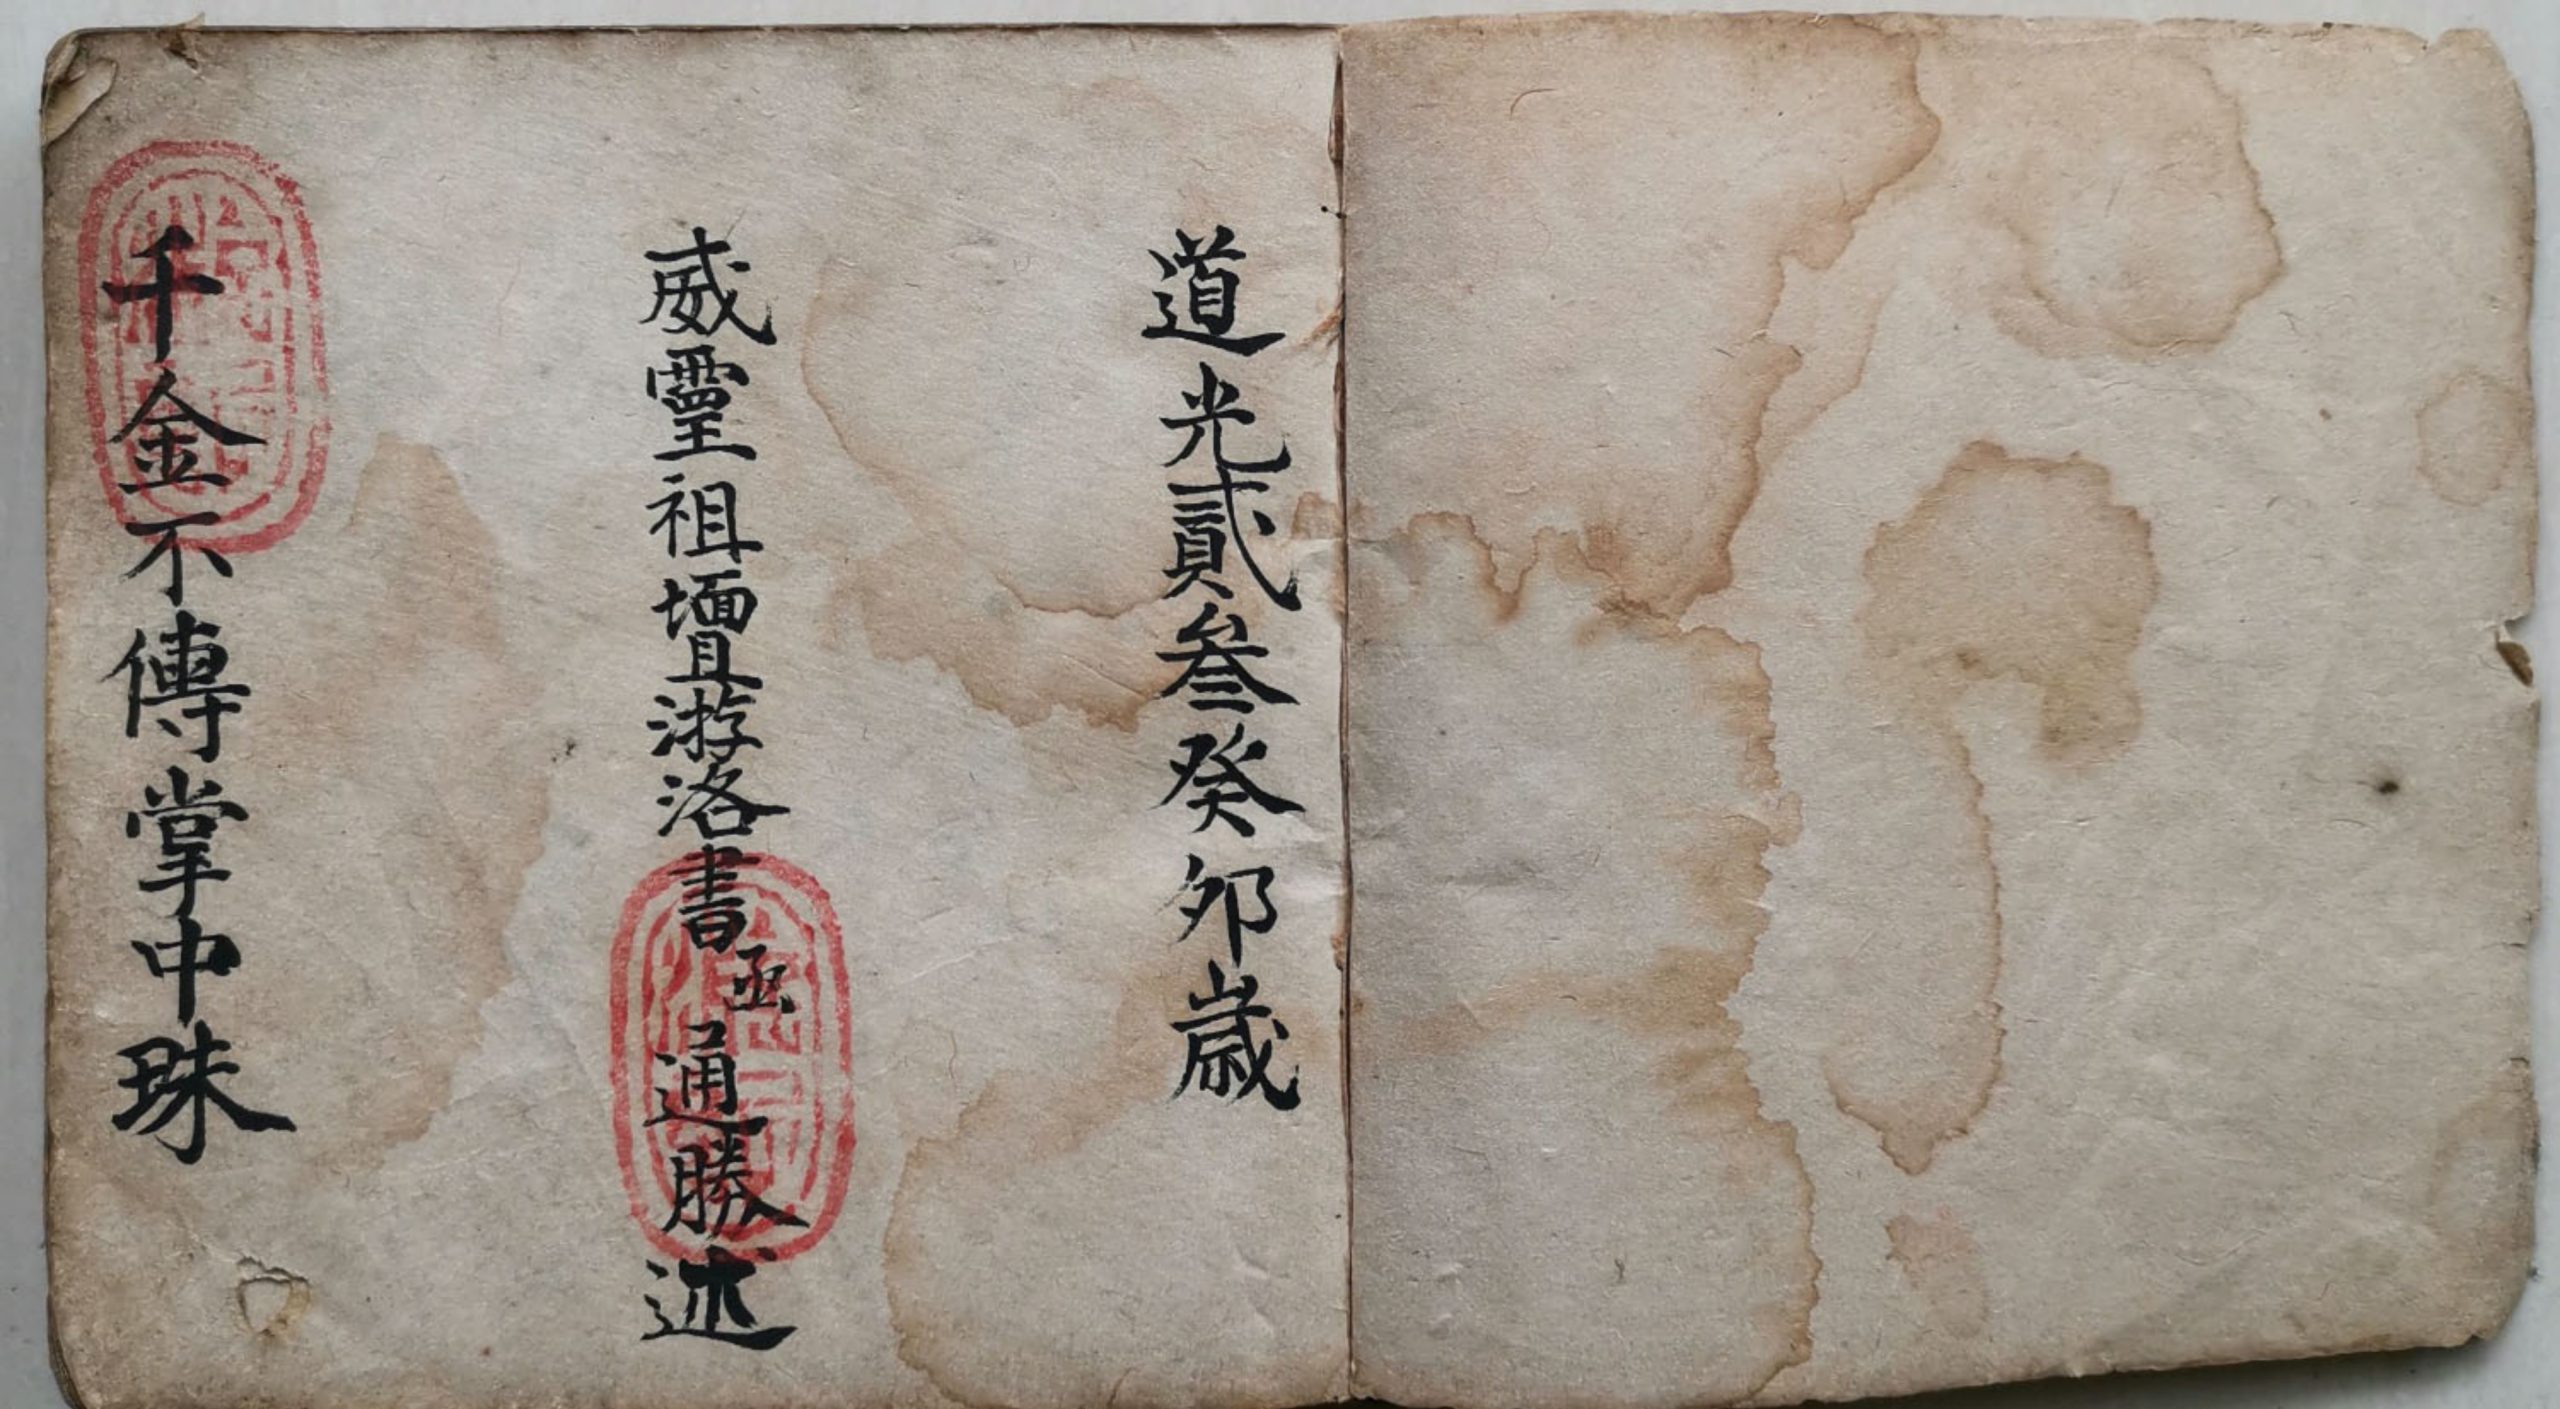 道光貳叁癸卯歲
威靈祖壇游洛書丞通勝述
千金不傳掌中珠